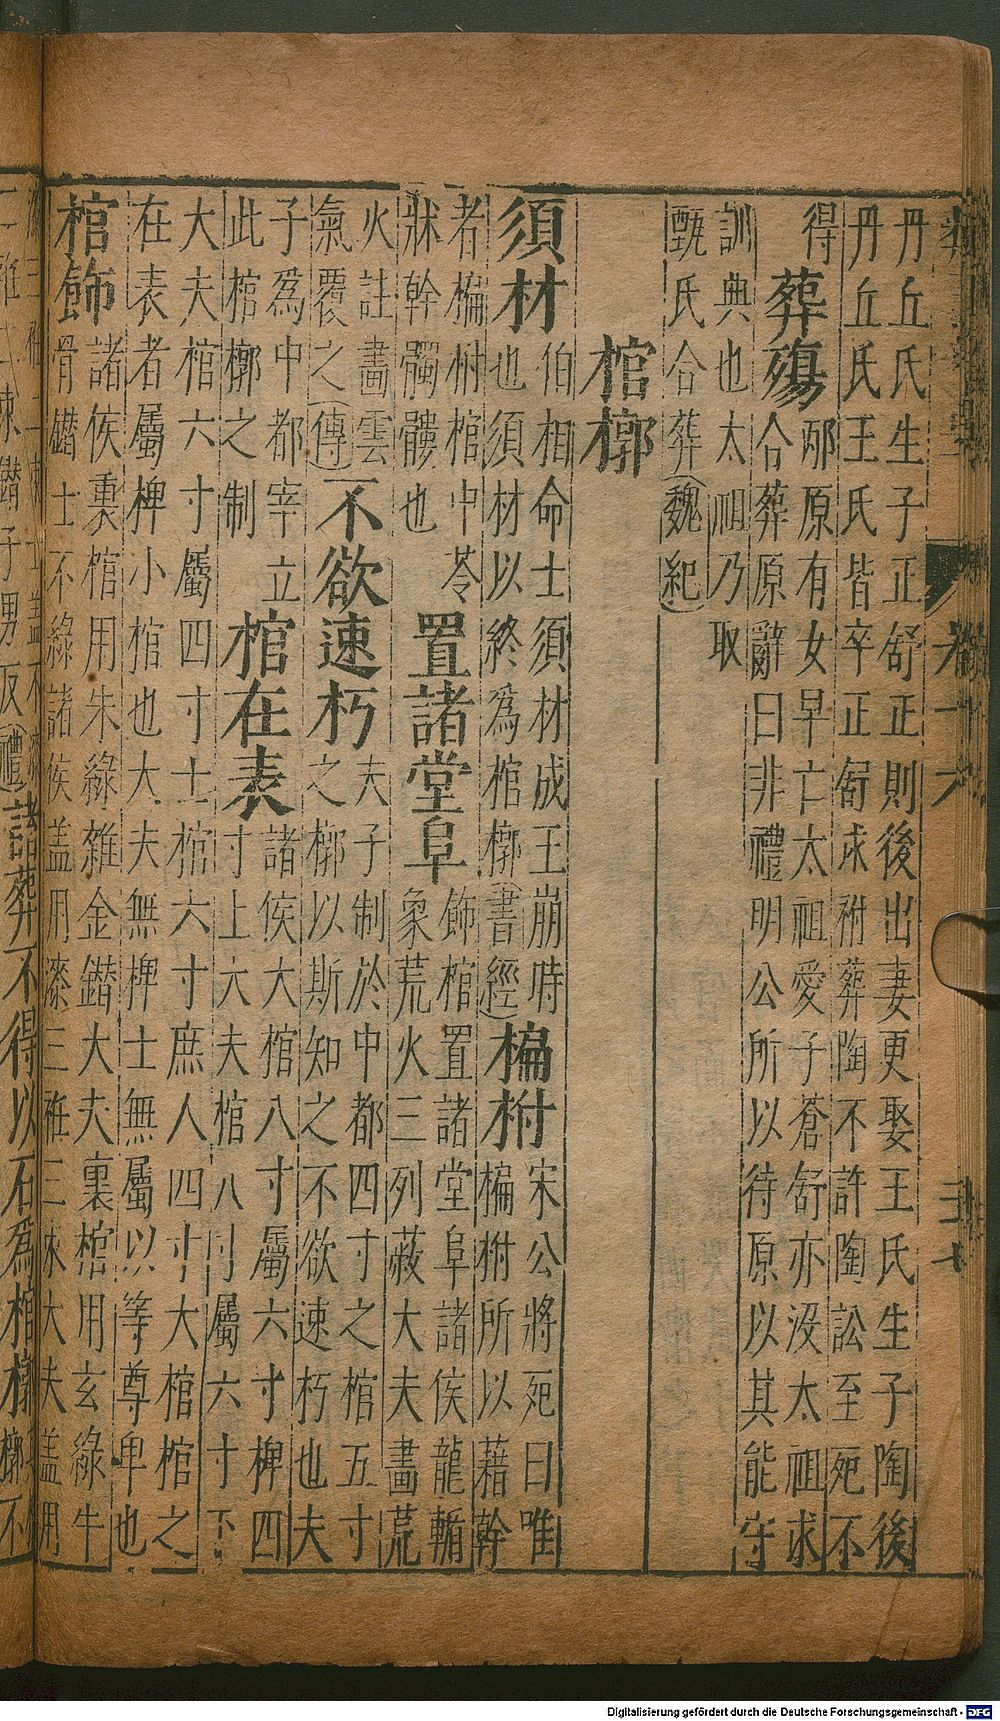 卷十六
三七
丹丘氏生子正舒正則後出妻更娶王氏生子陶後
丹丘氏王氏皆卒正舒求祔葬陶不許陶訟至死不
得
葬殤
邴原有女早亡太祖愛子蒼舒亦没太祖求
合葬原辭曰非禮明公所以待原以其能守
訓典也太祖乃取
甄氏合葬(魏紀)
棺槨
須材
伯相命士須材成王崩時
也須材以終爲棺槨(書經)
楄柎
宋公將死曰唯
楄柎所以藉幹
者楄柎棺中苓
牀幹髑髏也
置諸堂阜
飾棺置諸堂阜諸侯龍輴
象荒火三列黻大夫畫荒
火註畫雲
氣覆之(傳)
不欲速朽
夫子制於中都四寸之棺五寸
之槨以斯知之不欲速朽也夫
子爲中都宰立
此棺槨之制
棺在表
諸侯大棺八寸屬六寸椑四
寸上大夫棺八寸屬六寸下
大夫棺六寸屬四寸士棺六寸庶人四寸大棺棺之
在表者屬椑小棺也大夫無椑士無屬以等尊卑也
棺飾
諸侯裏棺用朱綠雜金鐕大夫裏棺用玄綠牛
骨鐕士不綠諸侯蓋用漆三衽三束大夫蓋用
(禮)
諸葬不得以石爲棺槨
Digitalisierung gefördert durch die Deutsche Forschungsgemeinschaft - DFG